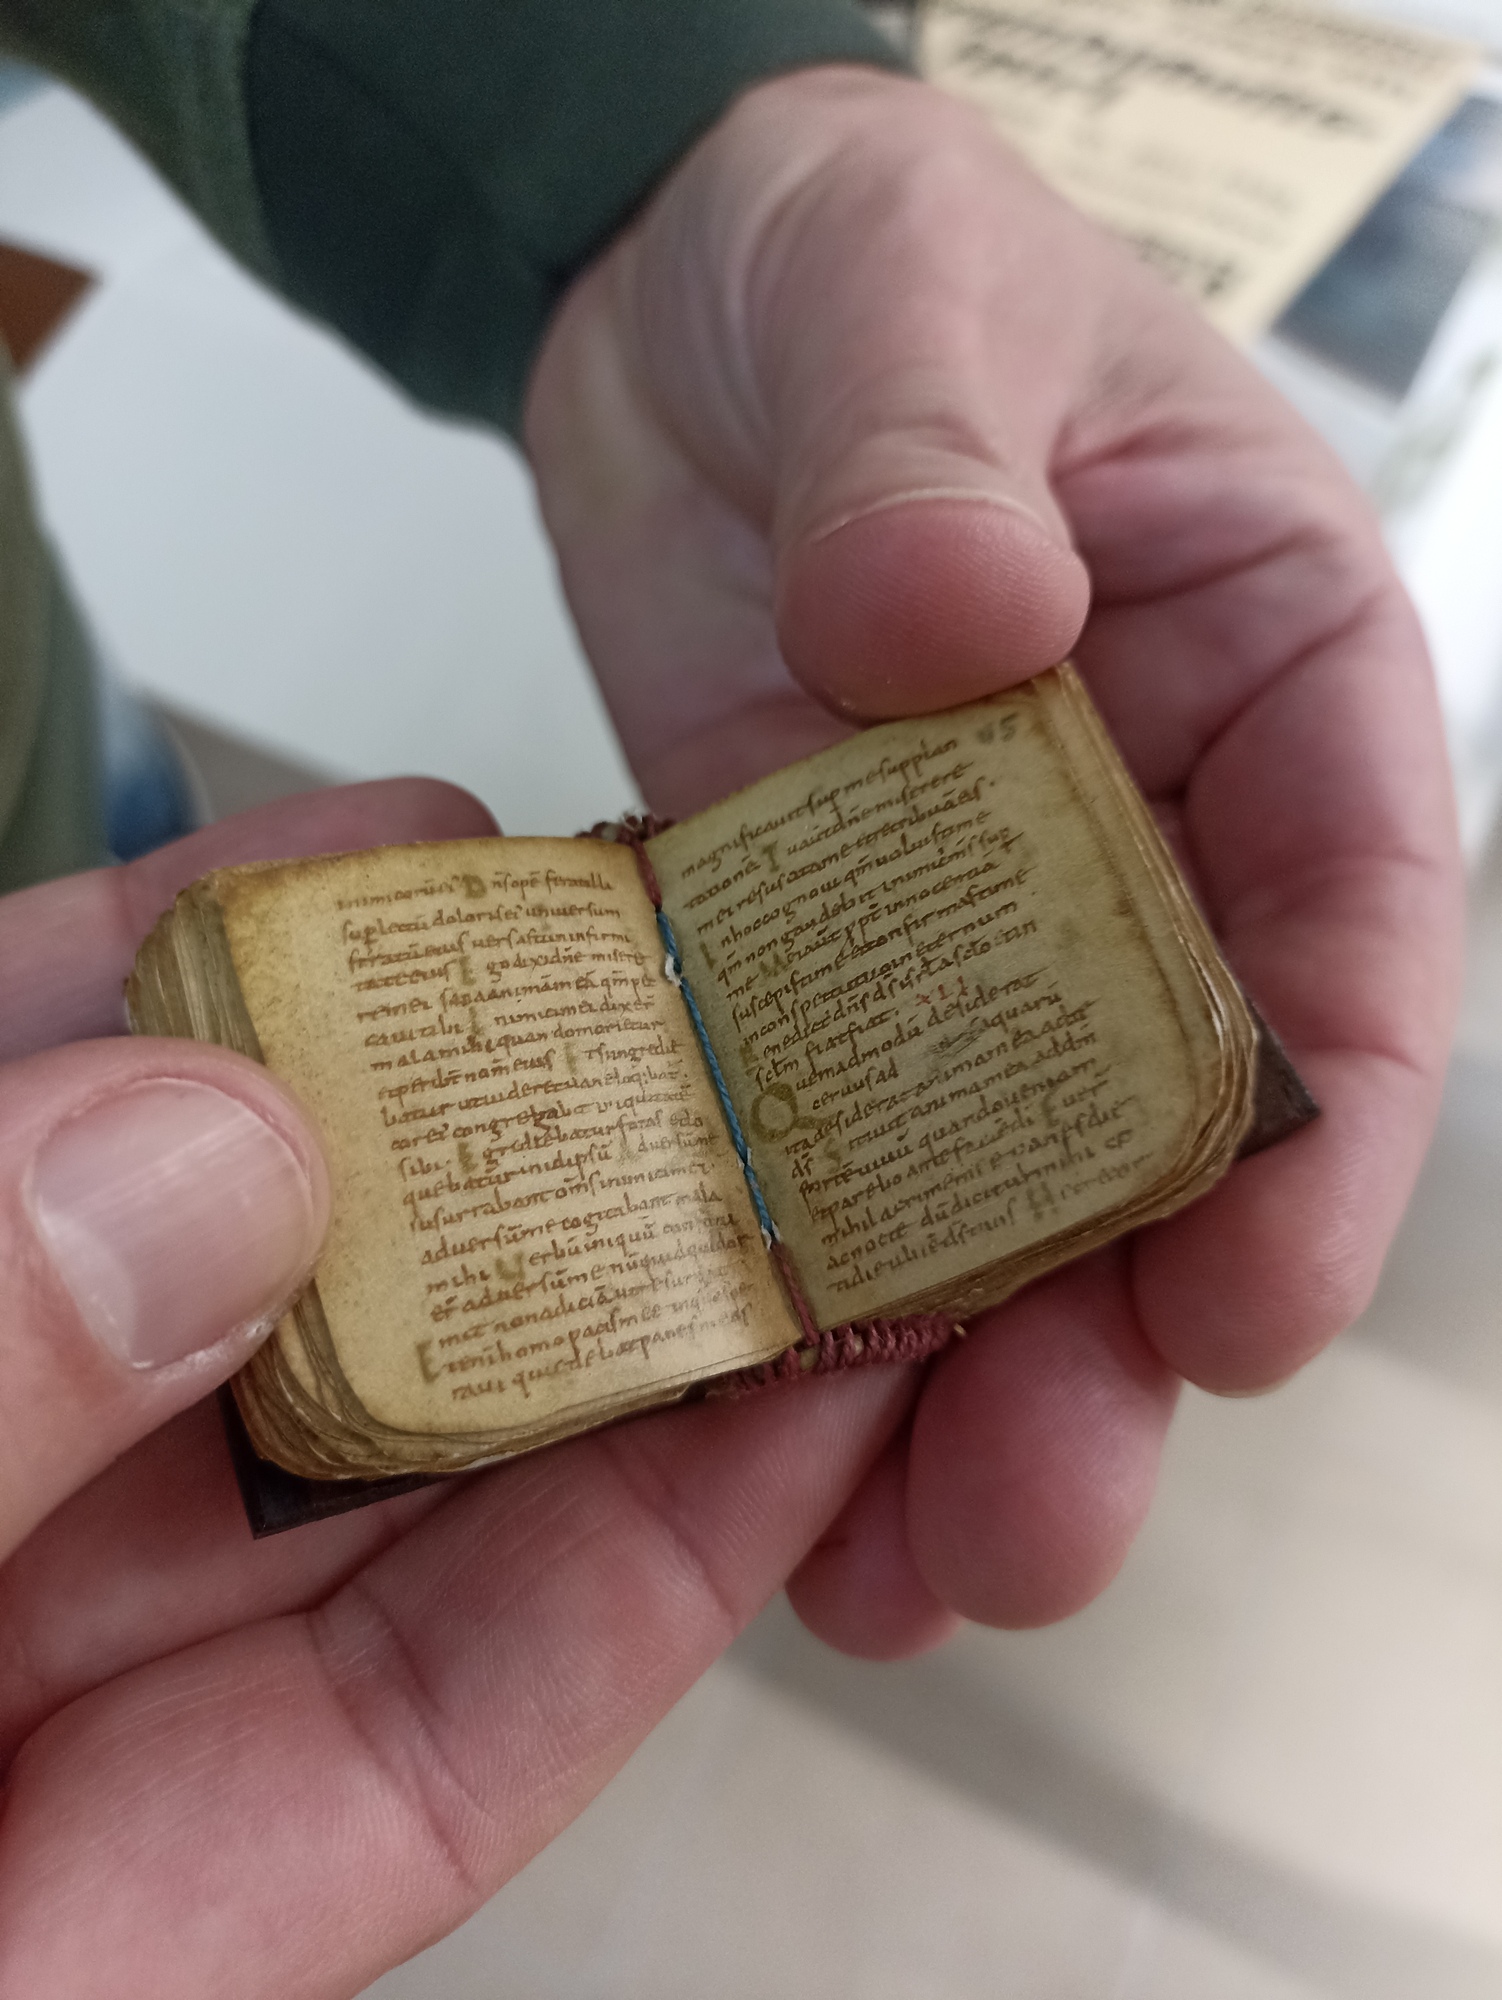 inimici eius Dn̄s opē ferat illi
sup̄ lectū doloris ei' universum
stratū eius versasti in infirmi
tate eius Ego dixi dn̄e misere
re mei sana animām eā qm̄ pec
cavi tibi Inimici mei dixer̄
mala mihi quando morietur
et peribit nom̄ eius Et si ingredie
batur ut videret vane loq̄bat.
cor ei' congregabit iniquitatē
sibi. Egrediebatur foras et lo
quebatur in idipsū Adversū me
susurrabant om̄s inimici mei.
adversū me cogitabant mala
mihi Verbū iniquū
adversū me nūquid qui dor
mit non adiciā ut resurgat
Etenī homo pacis mee in q° sper
avi qui edebat panes meos
45
magnificavit sup me supplan
tationē Tu aūt dn̄e miserere
mei resuscita me et retribuā eis.
In hoc cognovi qm̄ voluisti me
qm̄ non gaudebit inimic' m̄s sup
me Me aūt ppt̄ innocentiā
suscepisti me et confirmasti me
in conspectu tuo in eternum
Benedict' dn̄s ds̄ isrl̄ a sclō et in
sclm̄ fiat fiat. XLI
Quemadmodū desiderat
cervus ad aquarū
ita desiderat anima mea ad te
ds̄ Sitivit anima mea ad dm̄
fortē vivū quando veniam
et parebo ante faciē di Fuer̄
mihi lacrime mee panes die
ac nocte dū dicitur mihi
tidie ubi ē ds̄ tuus Hec recor